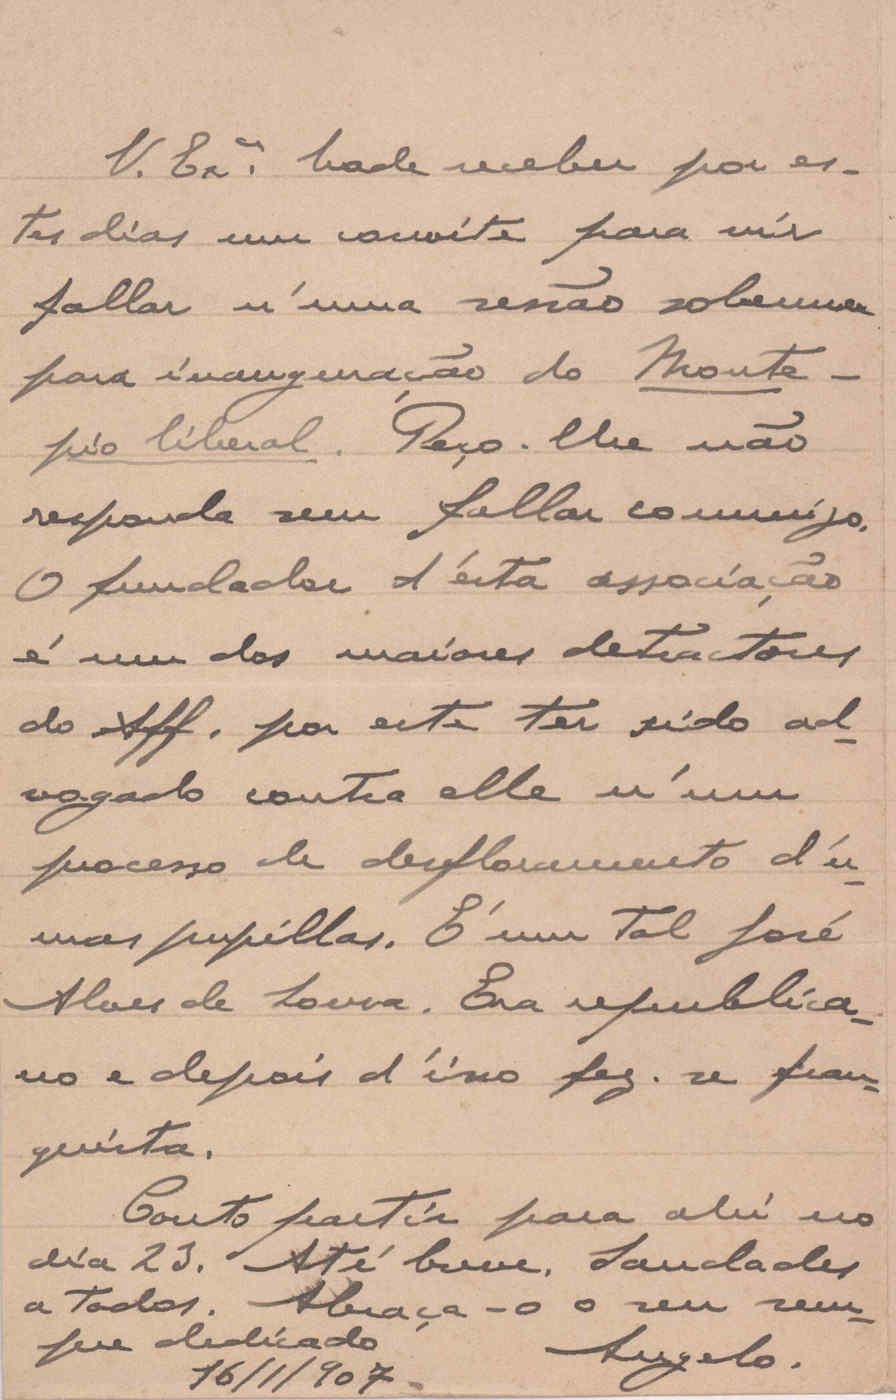 V. Exª. hade receber por es-
tes dias um convite para vir
fallar n'uma sessão solemne
para inauguração do Monte-
pio liberal. Peço-lhe não
responda sem fallar commigo.
O fundador d'ésta associação
é um dos maiores detractores
do Aff. por este ter sido ad-
vogado contra elle n'um
processo de desfloramento d'ú-
mas pupillas. É um tal José
Alves de Sousa. Era republica-
no e depois d'isso fez-se fran-
quista.
Conto partir para ahi no
dia 23. Até breve. Saudades
a todos. Abraça-o o seu sem-
pre dedicado
Angelo.
16/1/907